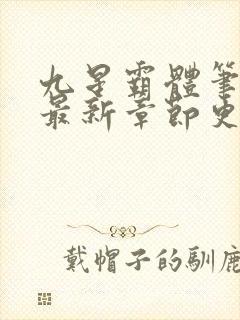 九星霸體筆
最新章節史
戴帽子的馴鹿